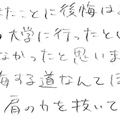 またことに後悔は
の大学に行ったとい
なかったと思いま
悔する道なんてほ
肩の力を抜いて